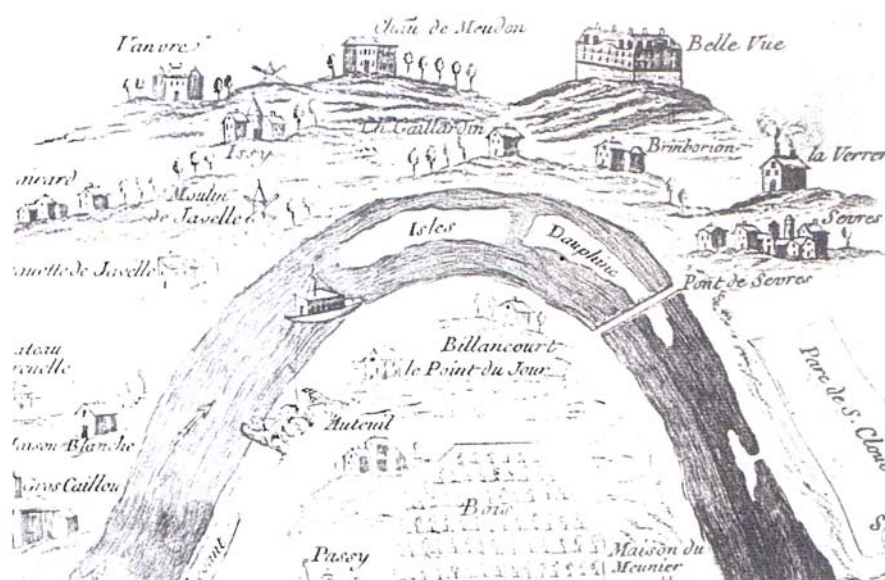 Vanvre
Chau de Meudon
Belle Vue
Issy
Ch. Gaillardin
Brimborion
la Verrer
Moulin
de Javelle
Isles
Dauphine
Sevres
Pont de Sevres
de Javelle
Billancourt
le Point du Jour
Parc de S. Clou
Auteuil
Maison Blanche
Gros Caillou
Bois
Passy
Maison du
Meunier